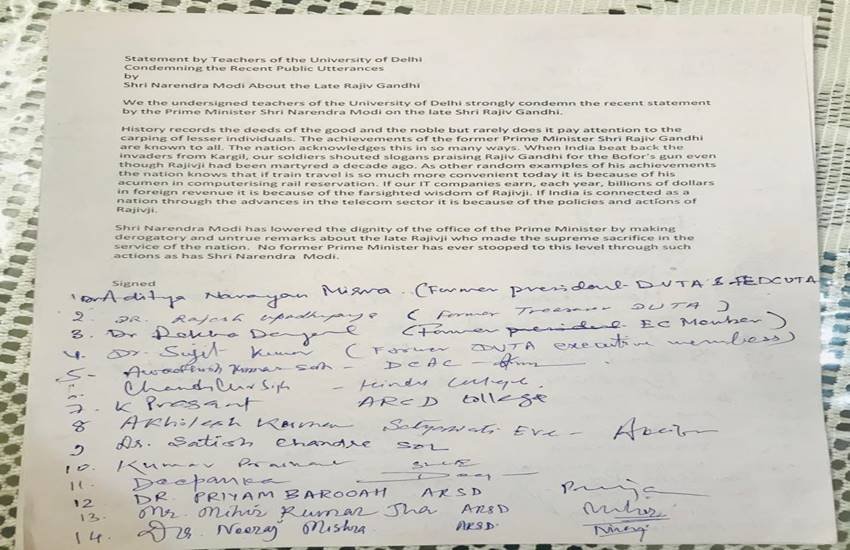 Statement by Teachers of the University of Delhi
Condemning the Recent Public Utterances
by
Shri Narendra Modi About the Late Rajiv Gandhi
We the undersigned teachers of the University of Delhi strongly condemn the recent statement
by the Prime Minister Shri Narendra Modi on the late Shri Rajiv Gandhi.
History records the deeds of the good and the noble but rarely does it pay attention to the
carping of lesser individuals. The achievements of the former Prime Minister Shri Rajiv Gandhi
are known to all. The nation acknowledges this in so many ways. When India beat back the
invaders from Kargil, our soldiers shouted slogans praising Rajiv Gandhi for the Bofor's gun even
though Rajivji had been martyred a decade ago. As other random examples of his achievements
the nation knows that if train travel is so much more convenient today it is because of his
acumen in computerising rail reservation. If our IT companies earn, each year, billions of dollars
in foreign revenue it is because of the farsighted wisdom of Rajivji. If India is connected as a
nation through the advances in the telecom sector it is because of the policies and actions of
Rajivji.
Shri Narendra Modi has lowered the dignity of the office of the Prime Minister by making
derogatory and untrue remarks about the late Rajivji who made the supreme sacrifice in the
service of the nation. No former Prime Minister has ever stooped to this level through such
actions as has Shri Narendra Modi.
Signed
1 Dr Aditya Narayan Misra (Former president DUTA & FEDCUTA
2. DR. Rajesh Upadhyaya (Former Treasurer DUTA)
3. Dr (Former president EC Member)
4. Dr. Sujit Kumar (Former DUTA executive members)
5- Awadhesh Kumar - DCAC -
- Hindu College.
7. K Prasant ARCD College
8 Akhilesh Kumar Satyawati Eve -
9 Ds. Satish Chandre SOL
10. Kumar
11. Deepanka
12 DR. PRIYAM BAROOAH ARSD
13. Mr. Mihir Kumar Jha ARSD Mihir
14. Drs. Neeraj Mishra ARSD. Niraj